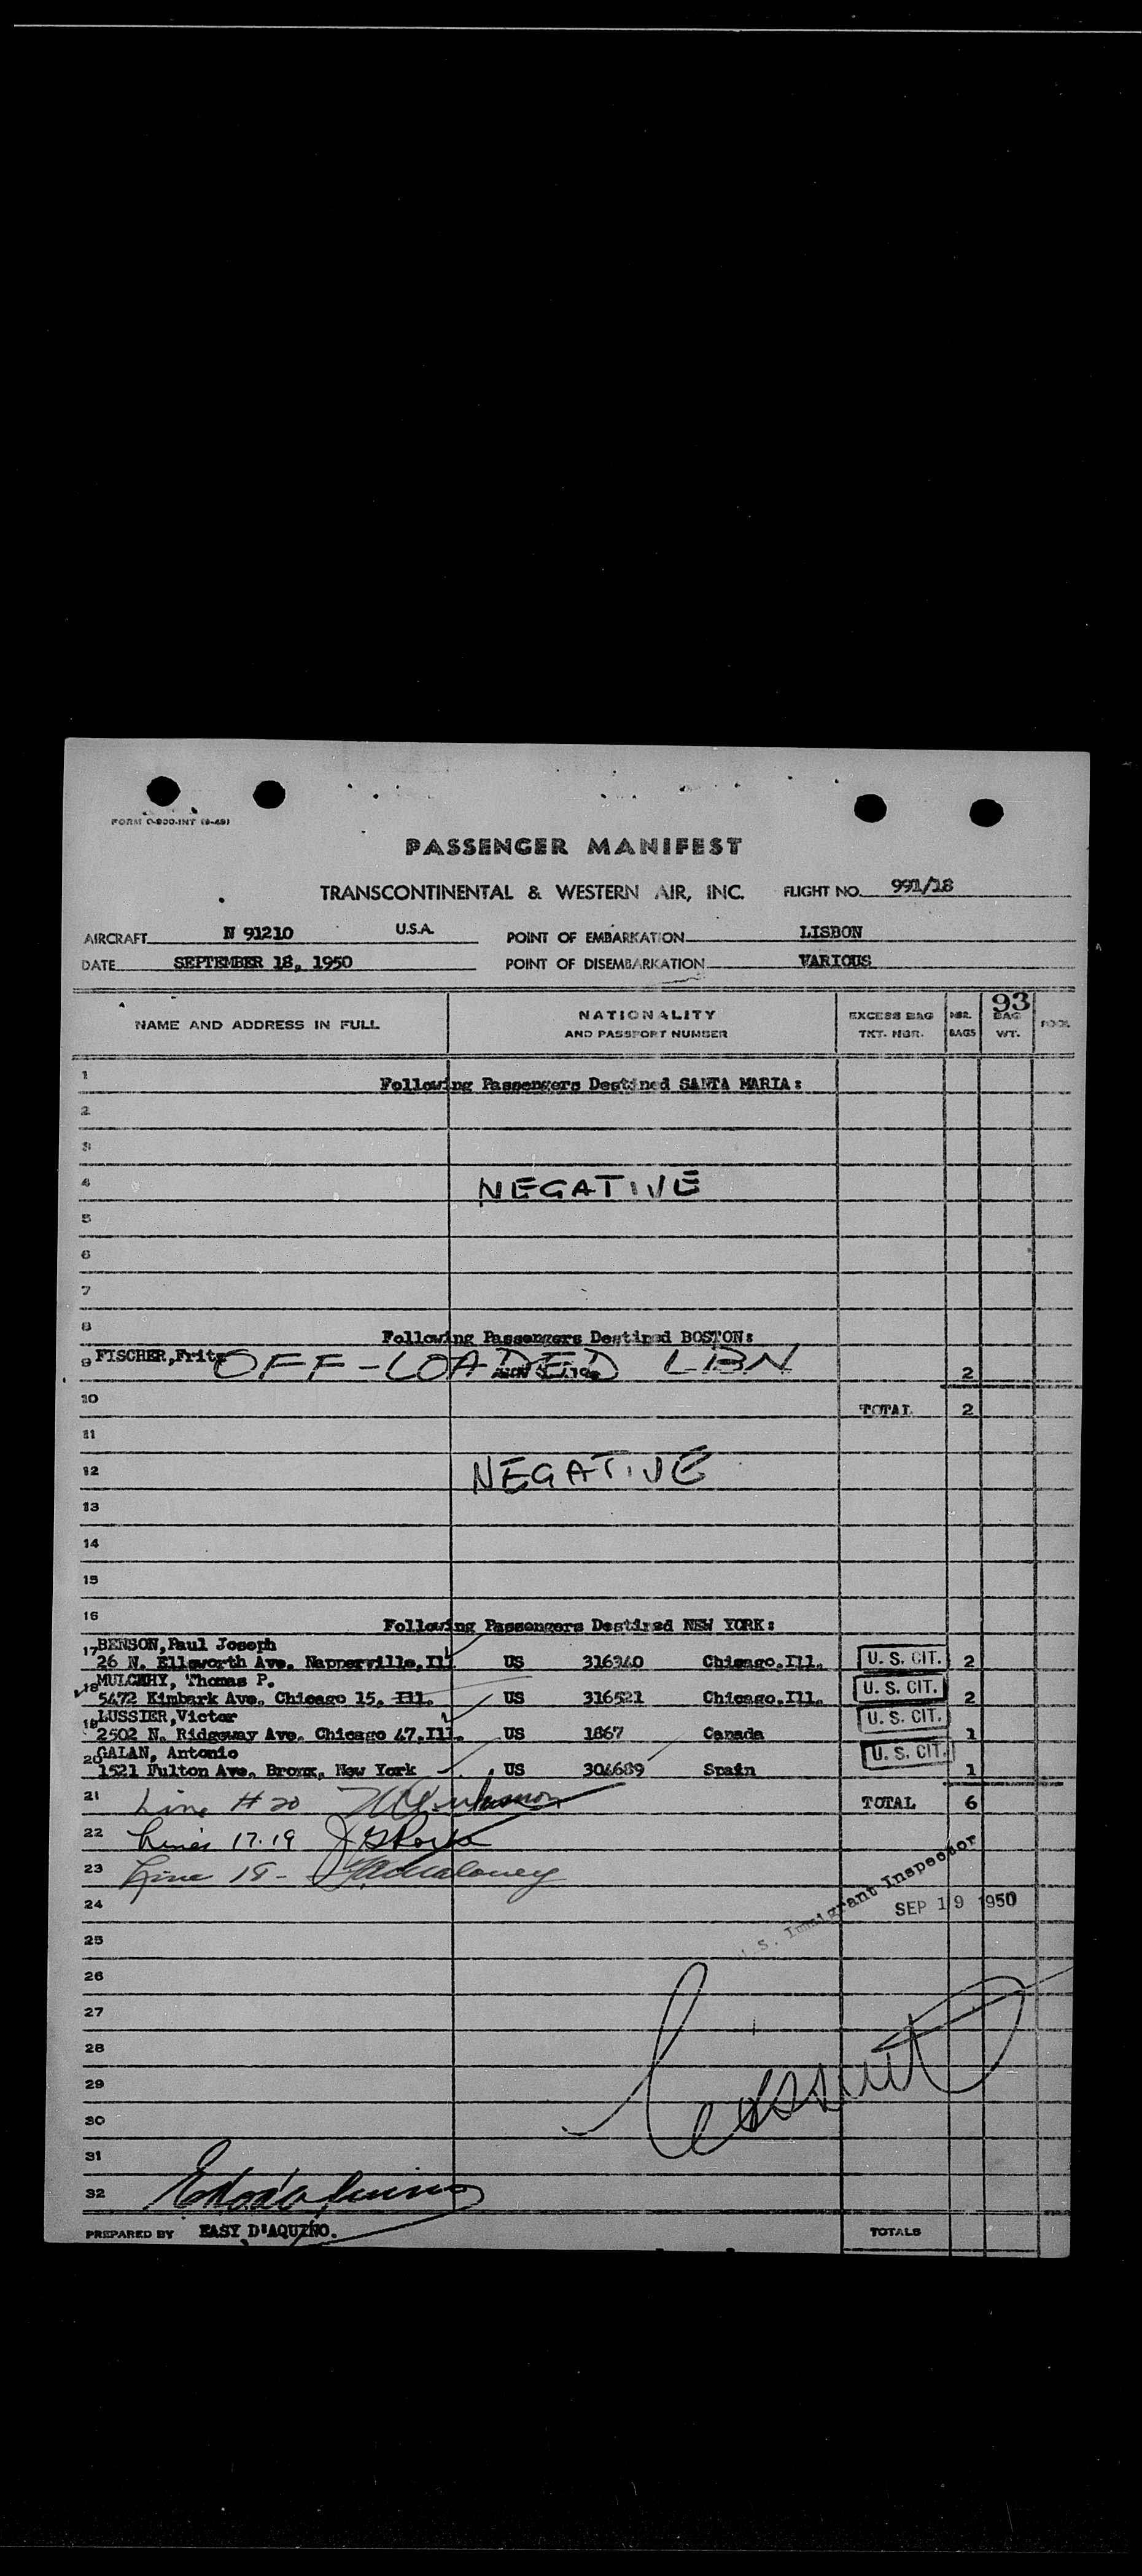 FORM O-800-INT (9-49)
PASSENGER MANIFEST
TRANSCONTINENTAL & WESTERN AIR, INC. FLIGHT NO. 991/18
AIRCRAFT N 91210 U.S.A. POINT OF EMBARKATION LISBON
DATE SEPTEMBER 18, 1950 POINT OF DISEMBARKATION VARIOUS
93
NAME AND ADDRESS IN FULL NATIONALITY AND PASSPORT NUMBER EXCESS BAG TKT. NBR. NBR. BAGS BAG WT.
1 Following Passengers Destined SANTA MARIA:
2
3
4 NEGATIVE
5
6
7
8 Following Passengers Destined BOSTON:
9 FISCHER,Fritz OFF-LOADED LBN 2
10 TOTAL 2
11
12 NEGATIVE
13
14
15
16 Following Passengers Destined NEW YORK:
17 BENSON,Paul Joseph
26 N. Ellsworth Ave. Napperville,Ill US 316340 Chicago,Ill. U. S. CIT. 2
18 MULCAHY, Thomas P.
5472 Kimbark Ave. Chicago 15, Ill. US 316521 Chicago,Ill. U. S. CIT. 2
19 LUSSIER,Victor
2502 N. Ridgeway Ave. Chicago 47,Ill. US 1867 Canada U. S. CIT. 1
20 GALAN, Antonio
1521 Fulton Ave. Bronx, New York US 304689 Spain U. S. CIT. 1
21 Line # 20 TOTAL 6
22 Lines 17.19
23 Line 18 -
U.S. Immigrant Inspector
24 SEP 19 1950
25
26
27
28
29
30
31
32
PREPARED BY EASY D'AQUINO. TOTALS